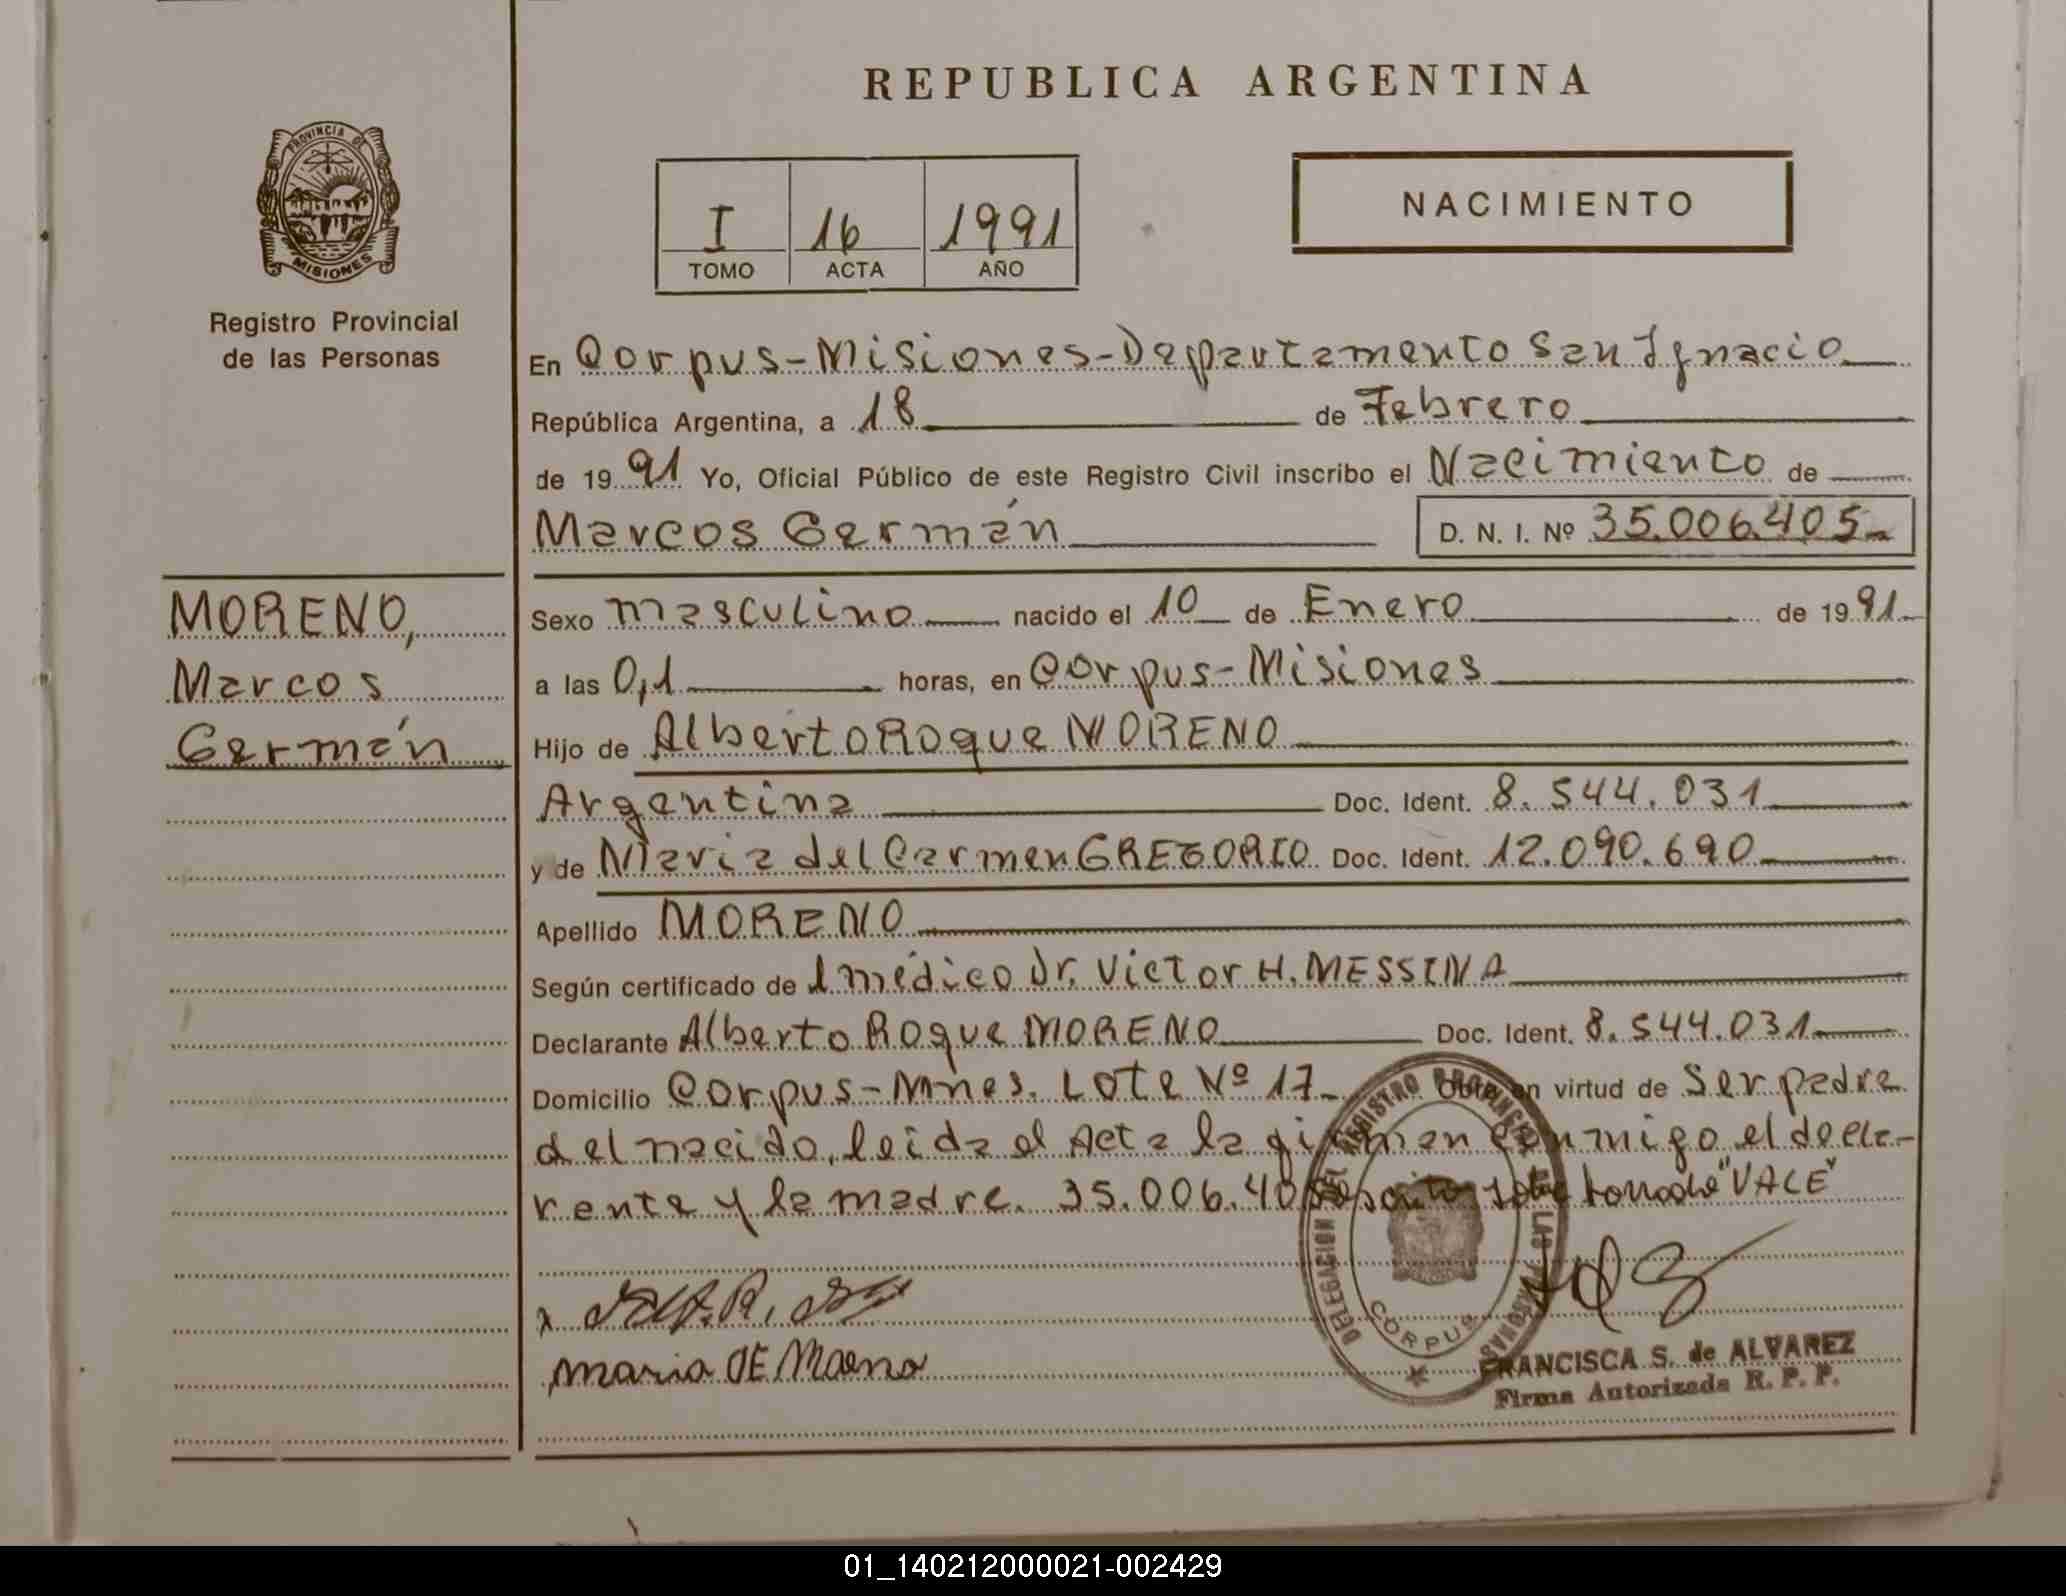 REPUBLICA ARGENTINA
PROVINCIA DE
MISIONES
Registro Provincial
de las Personas
I 16 1991
TOMO ACTA AÑO
NACIMIENTO
En Corpus-Misiones-Departamento San Ignacio
República Argentina, a 18 de Febrero
de 1991 Yo, Oficial Público de este Registro Civil inscribo el Nacimiento de
Marcos Germán D. N. I. Nº 35.006.405
MORENO,
Marcos
Germán
Sexo masculino nacido el 10 de Enero de 1991
a las 0,1 horas, en Corpus-Misiones
Hijo de Alberto Roque MORENO
Argentina Doc. Ident. 8.544.031
y de Maria del Carmen GREGORIO Doc. Ident. 12.090.690
Apellido MORENO
Según certificado de l médico Dr. Victor H. MESSINA
Declarante Alberto Roque MORENO Doc. Ident. 8.544.031
Domicilio Corpus-Mnes. Lote Nº 17 Obra en virtud de Ser padre
del nacido, leida el Acta la firman conmigo el decla-
rente y la madre. 35.006.405 escrito sobre borrado "VALE"
DELEGACION DEL REGISTRO PROVINCIAL DE LAS PERSONAS
CORPUS
maria DE Moreno
FRANCISCA S. de ALVAREZ
Firma Autorizada R. P. P.
01_140212000021-002429